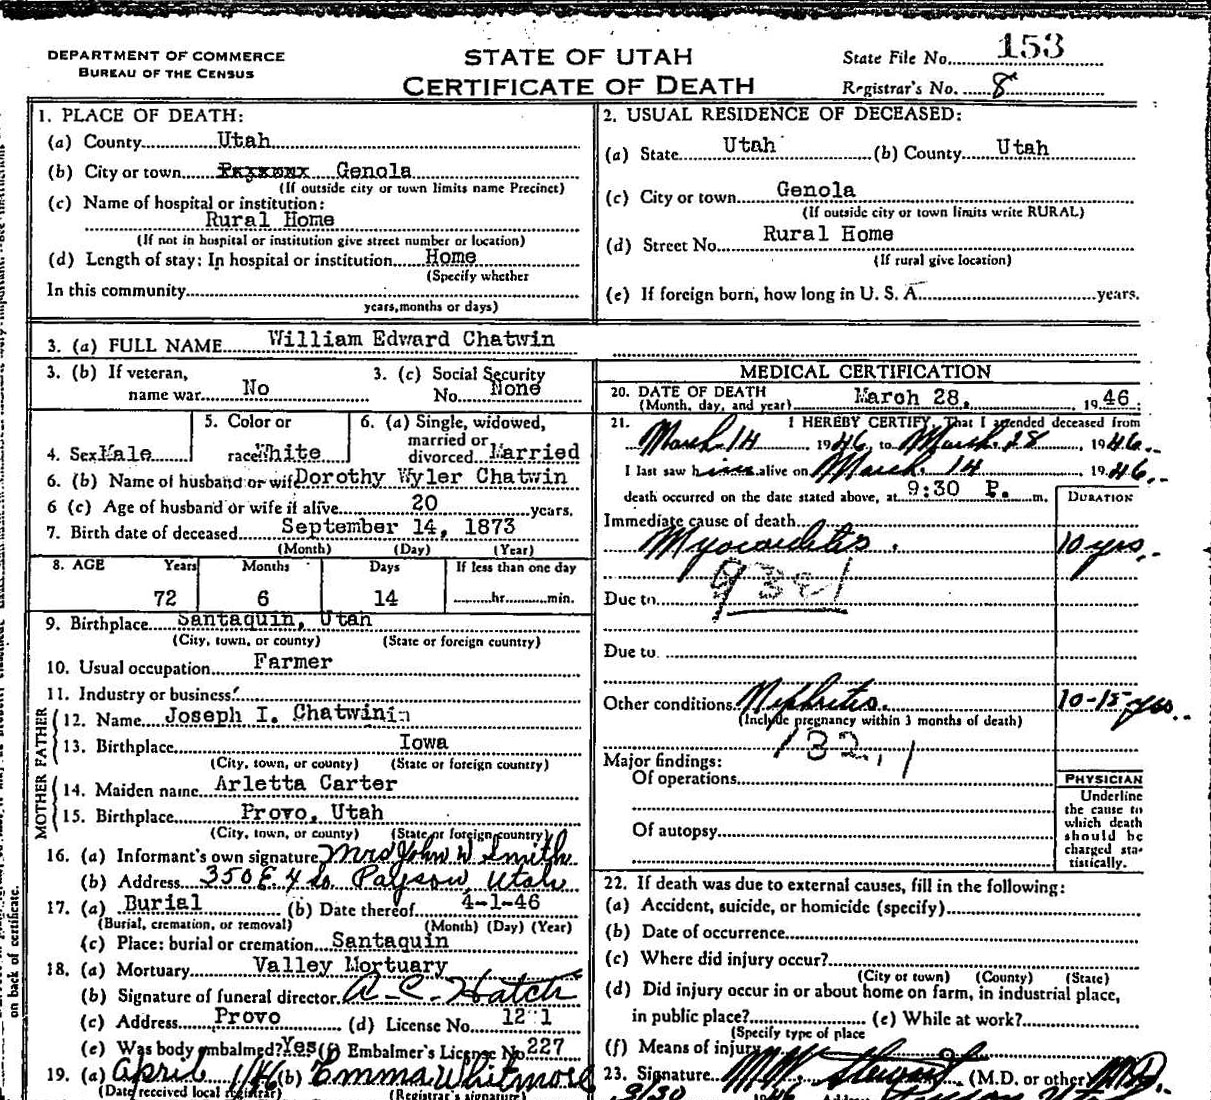 DEPARTMENT OF COMMERCE
BUREAU OF THE CENSUS
STATE OF UTAH
CERTIFICATE OF DEATH
State File No. 153
Registrar's No. 8
1. PLACE OF DEATH:
(a) County Utah
(b) City or town Genola
(If outside city or town limits name Precinct)
(c) Name of hospital or institution:
Rural Home
(If not in hospital or institution give street number or location)
(d) Length of stay: In hospital or institution Home
(Specify whether
In this community
years, months or days)
2. USUAL RESIDENCE OF DECEASED:
(a) State Utah (b) County Utah
(c) City or town Genola
(If outside city or town limits write RURAL)
(d) Street No. Rural Home
(If rural give location)
(e) If foreign born, how long in U. S. A. years.
3. (a) FULL NAME William Edward Chatwin
3. (b) If veteran, name war No
3. (c) Social Security No. None
4. Sex Male
5. Color or race White
6. (a) Single, widowed, married or divorced Married
6. (b) Name of husband or wife Dorothy Wyler Chatwin
6 (c) Age of husband or wife if alive 20 years.
7. Birth date of deceased September 14, 1873
(Month) (Day) (Year)
8. AGE Years Months Days If less than one day
72 6 14 hr. min.
9. Birthplace Santaquin, Utah
(City, town, or county) (State or foreign country)
10. Usual occupation Farmer
11. Industry or business
FATHER
12. Name Joseph I. Chatwin
13. Birthplace Iowa
(City, town, or county) (State or foreign country)
MOTHER
14. Maiden name Arletta Carter
15. Birthplace Provo, Utah
(City, town, or county) (State or foreign country)
16. (a) Informant's own signature Mrs John W Smith
(b) Address 350 E. 4 So. Payson, Utah
17. (a) Burial (b) Date thereof 4-1-46
(Burial, cremation, or removal) (Month) (Day) (Year)
(c) Place: burial or cremation Santaquin
18. (a) Mortuary Valley Mortuary
(b) Signature of funeral director A. C. Hatch
(c) Address Provo (d) License No. 12 1
(e) Was body embalmed? Yes (f) Embalmer's License No. 227
19. (a) April 1/46 (b) Emma Whitmore
(Date received local registrar) (Registrar's signature)
MEDICAL CERTIFICATION
20. DATE OF DEATH March 28, 1946
(Month, day, and year)
21. I HEREBY CERTIFY, That I attended deceased from
March 14 1946, to March 28 1946.
I last saw him alive on March 14 1946.
death occurred on the date stated above, at 9:30 P. m.
DURATION
Immediate cause of death
Myocarditis. 10 yrs.
Due to
Due to
Other conditions Nephritis. 10-15 yrs.
(Include pregnancy within 3 months of death)
132.1
Major findings:
Of operations
Of autopsy
PHYSICIAN
Underline
the cause to
which death
should be
charged sta-
tistically.
22. If death was due to external causes, fill in the following:
(a) Accident, suicide, or homicide (specify)
(b) Date of occurrence
(c) Where did injury occur?
(City or town) (County) (State)
(d) Did injury occur in or about home on farm, in industrial place,
in public place? (e) While at work?
(Specify type of place
(f) Means of injury
23. Signature Stewart (M.D. or other) M.D.
3/30 1946 Address Payson Utah
on back of certificate.